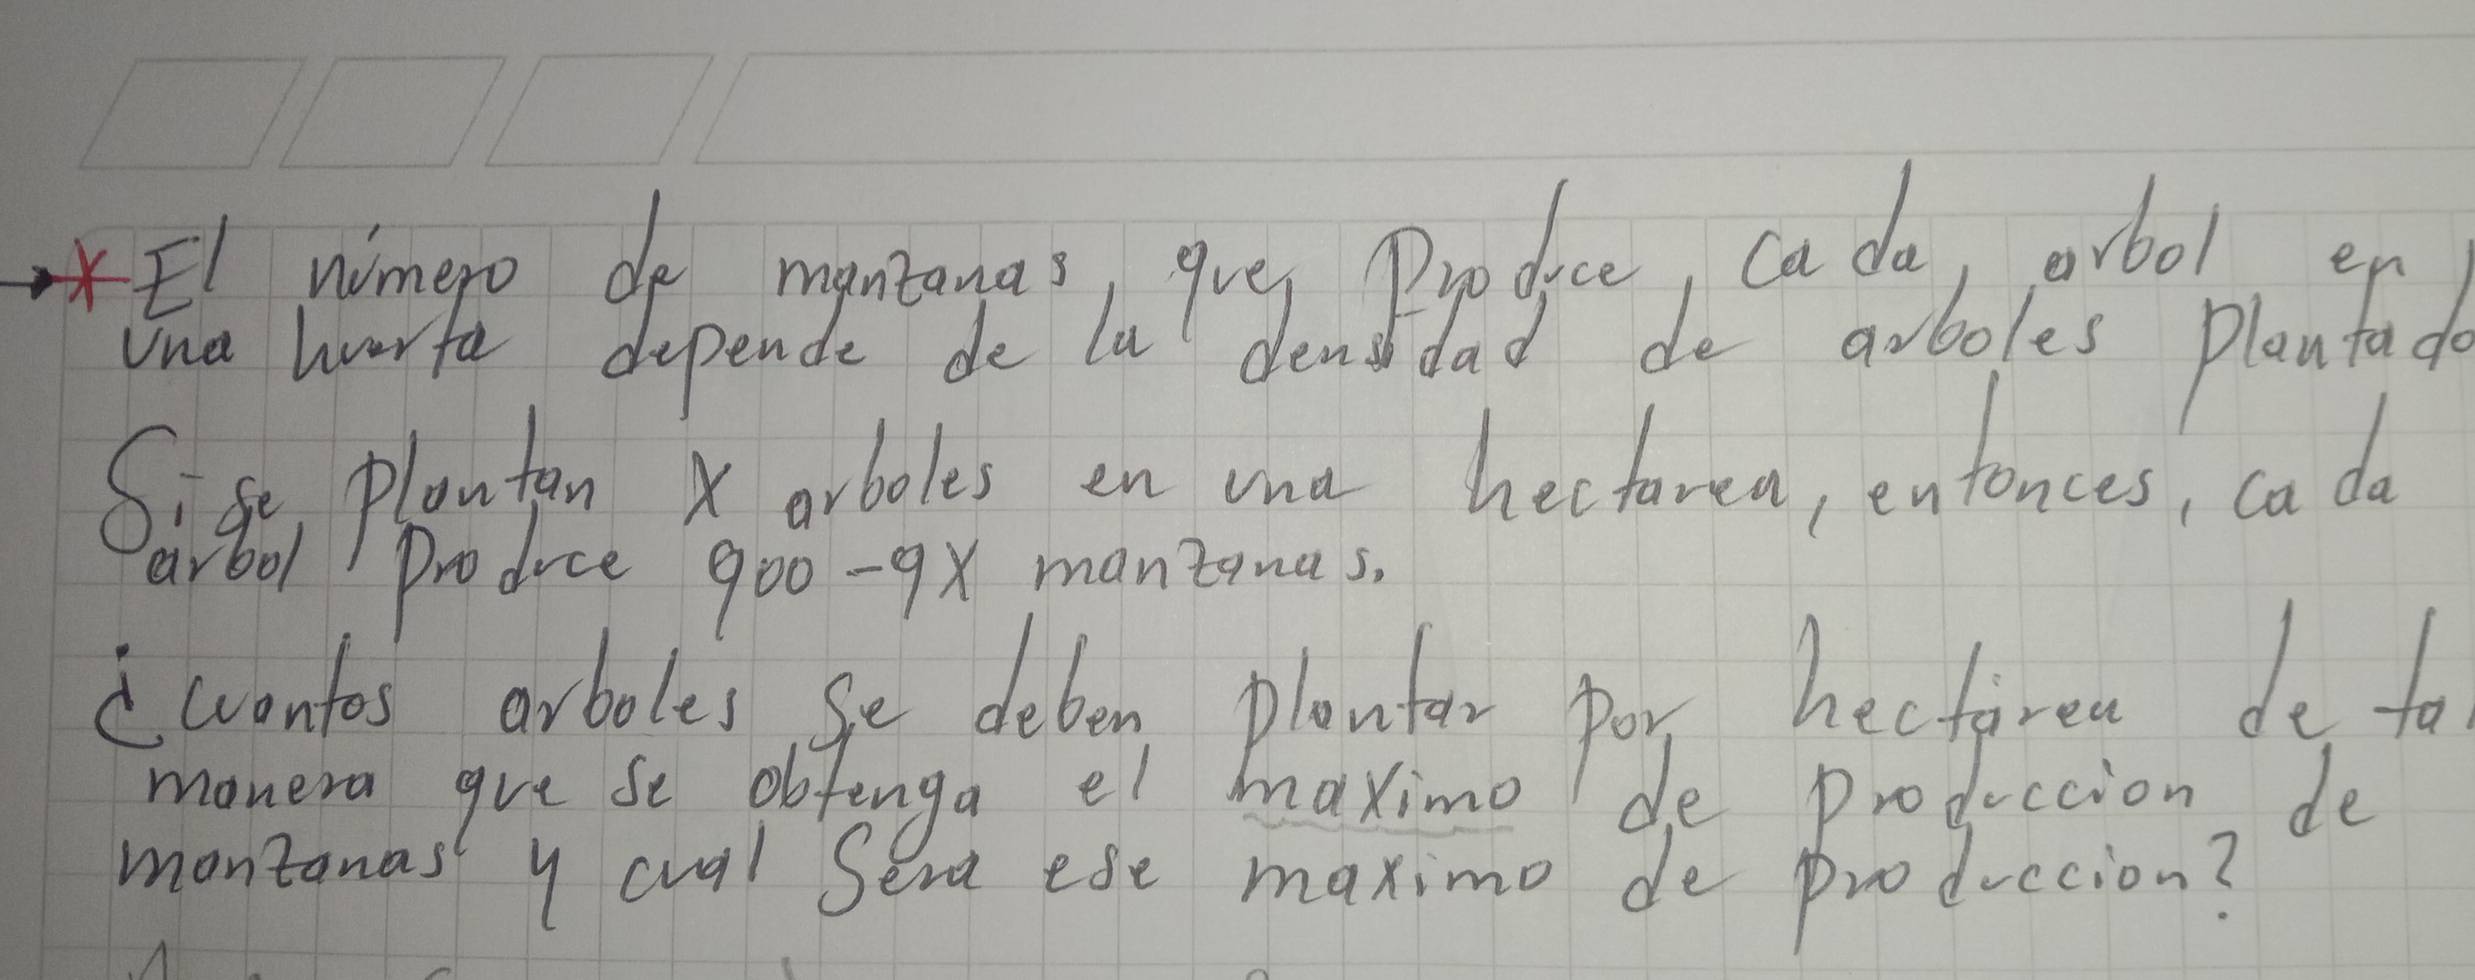 *El número de manzanas, que, produce, cada, arbol en
una huerta depende de la densidad de arboles plantado
Si se, plantan X arboles en una hectarea, entonces, cada
arbol produce 900-9X manzanas.
¿cuantos arboles se deben plantar por hectárea de tal
manera que se obtenga el maximo de produccion de
manzanas y cual sera ese maximo de produccion?